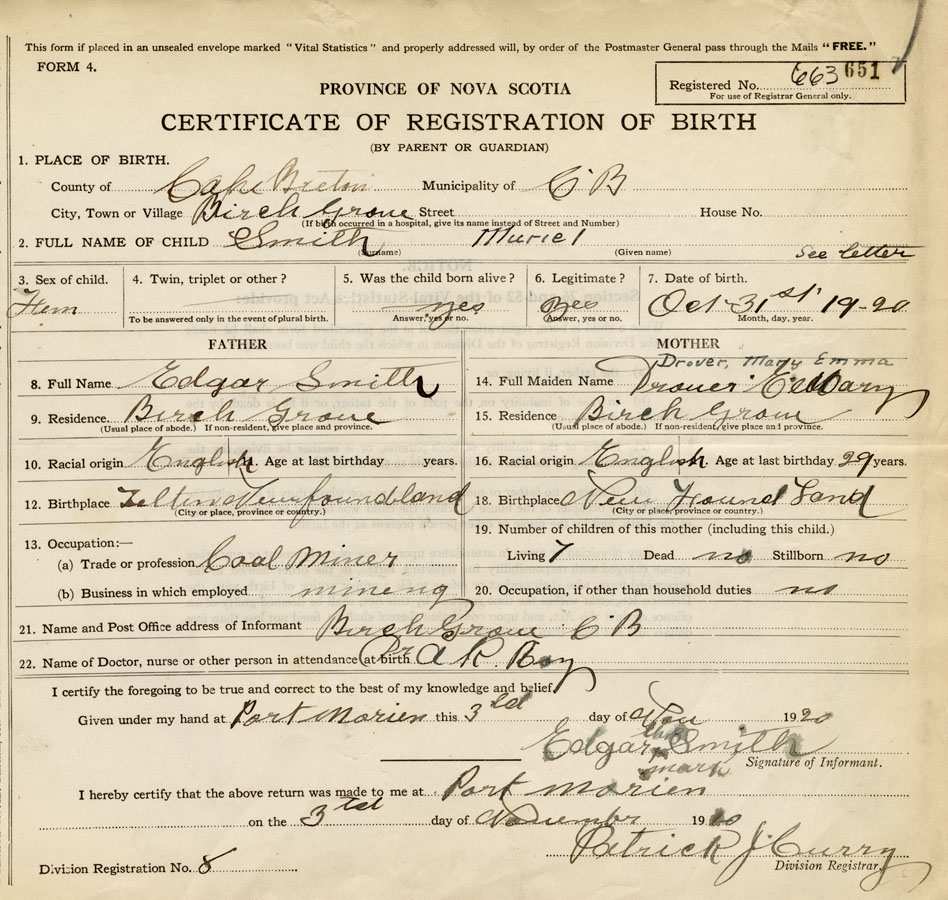 This form if placed in an unsealed envelope marked "Vital Statistics" and properly addressed will, by order of the Postmaster General pass through the Mails "FREE."
FORM 4.
Registered No. 663 651
For use of Registrar General only.
PROVINCE OF NOVA SCOTIA
CERTIFICATE OF REGISTRATION OF BIRTH
(BY PARENT OR GUARDIAN)
1. PLACE OF BIRTH.
County of Cape Breton Municipality of C B
City, Town or Village Birch Grove Street House No.
(If birth occurred in a hospital, give its name instead of Street and Number)
2. FULL NAME OF CHILD Smith Muriel
(Surname) (Given name) See letter
3. Sex of child. 4. Twin, triplet or other? 5. Was the child born alive? 6. Legitimate? 7. Date of birth.
Fem yes yes Oct 31st 19-20
To be answered only in the event of plural birth. Answer, yes or no. Answer, yes or no. Month, day, year.
FATHER MOTHER
Drover, Mary Emma
8. Full Name Edgar Smith 14. Full Maiden Name Drover Mary
9. Residence. Birch Grove 15. Residence Birch Grove
(Usual place of abode.) If non-resident, give place and province. (Usual place of abode.) If non-resident, give place and province.
10. Racial origin English Age at last birthday years. 16. Racial origin English Age at last birthday 29 years.
12. Birthplace Newfoundland 18. Birthplace New Found Land
(City or place, province or country.) (City or place, province or country.)
19. Number of children of this mother (including this child.)
13. Occupation:—
(a) Trade or profession Coal Miner Living 7 Dead no Stillborn no
(b) Business in which employed mining 20. Occupation, if other than household duties no
21. Name and Post Office address of Informant Birch Grove C B
22. Name of Doctor, nurse or other person in attendance at birth Dr A R Roy
I certify the foregoing to be true and correct to the best of my knowledge and belief.
Given under my hand at Port Morien this 3rd day of Nov 1920
Edgar his Smith
mark
Signature of Informant.
I hereby certify that the above return was made to me at Port Morien
on the 3rd day of November 1920
Patrick J. Curry
Division Registration No. 8 Division Registrar.